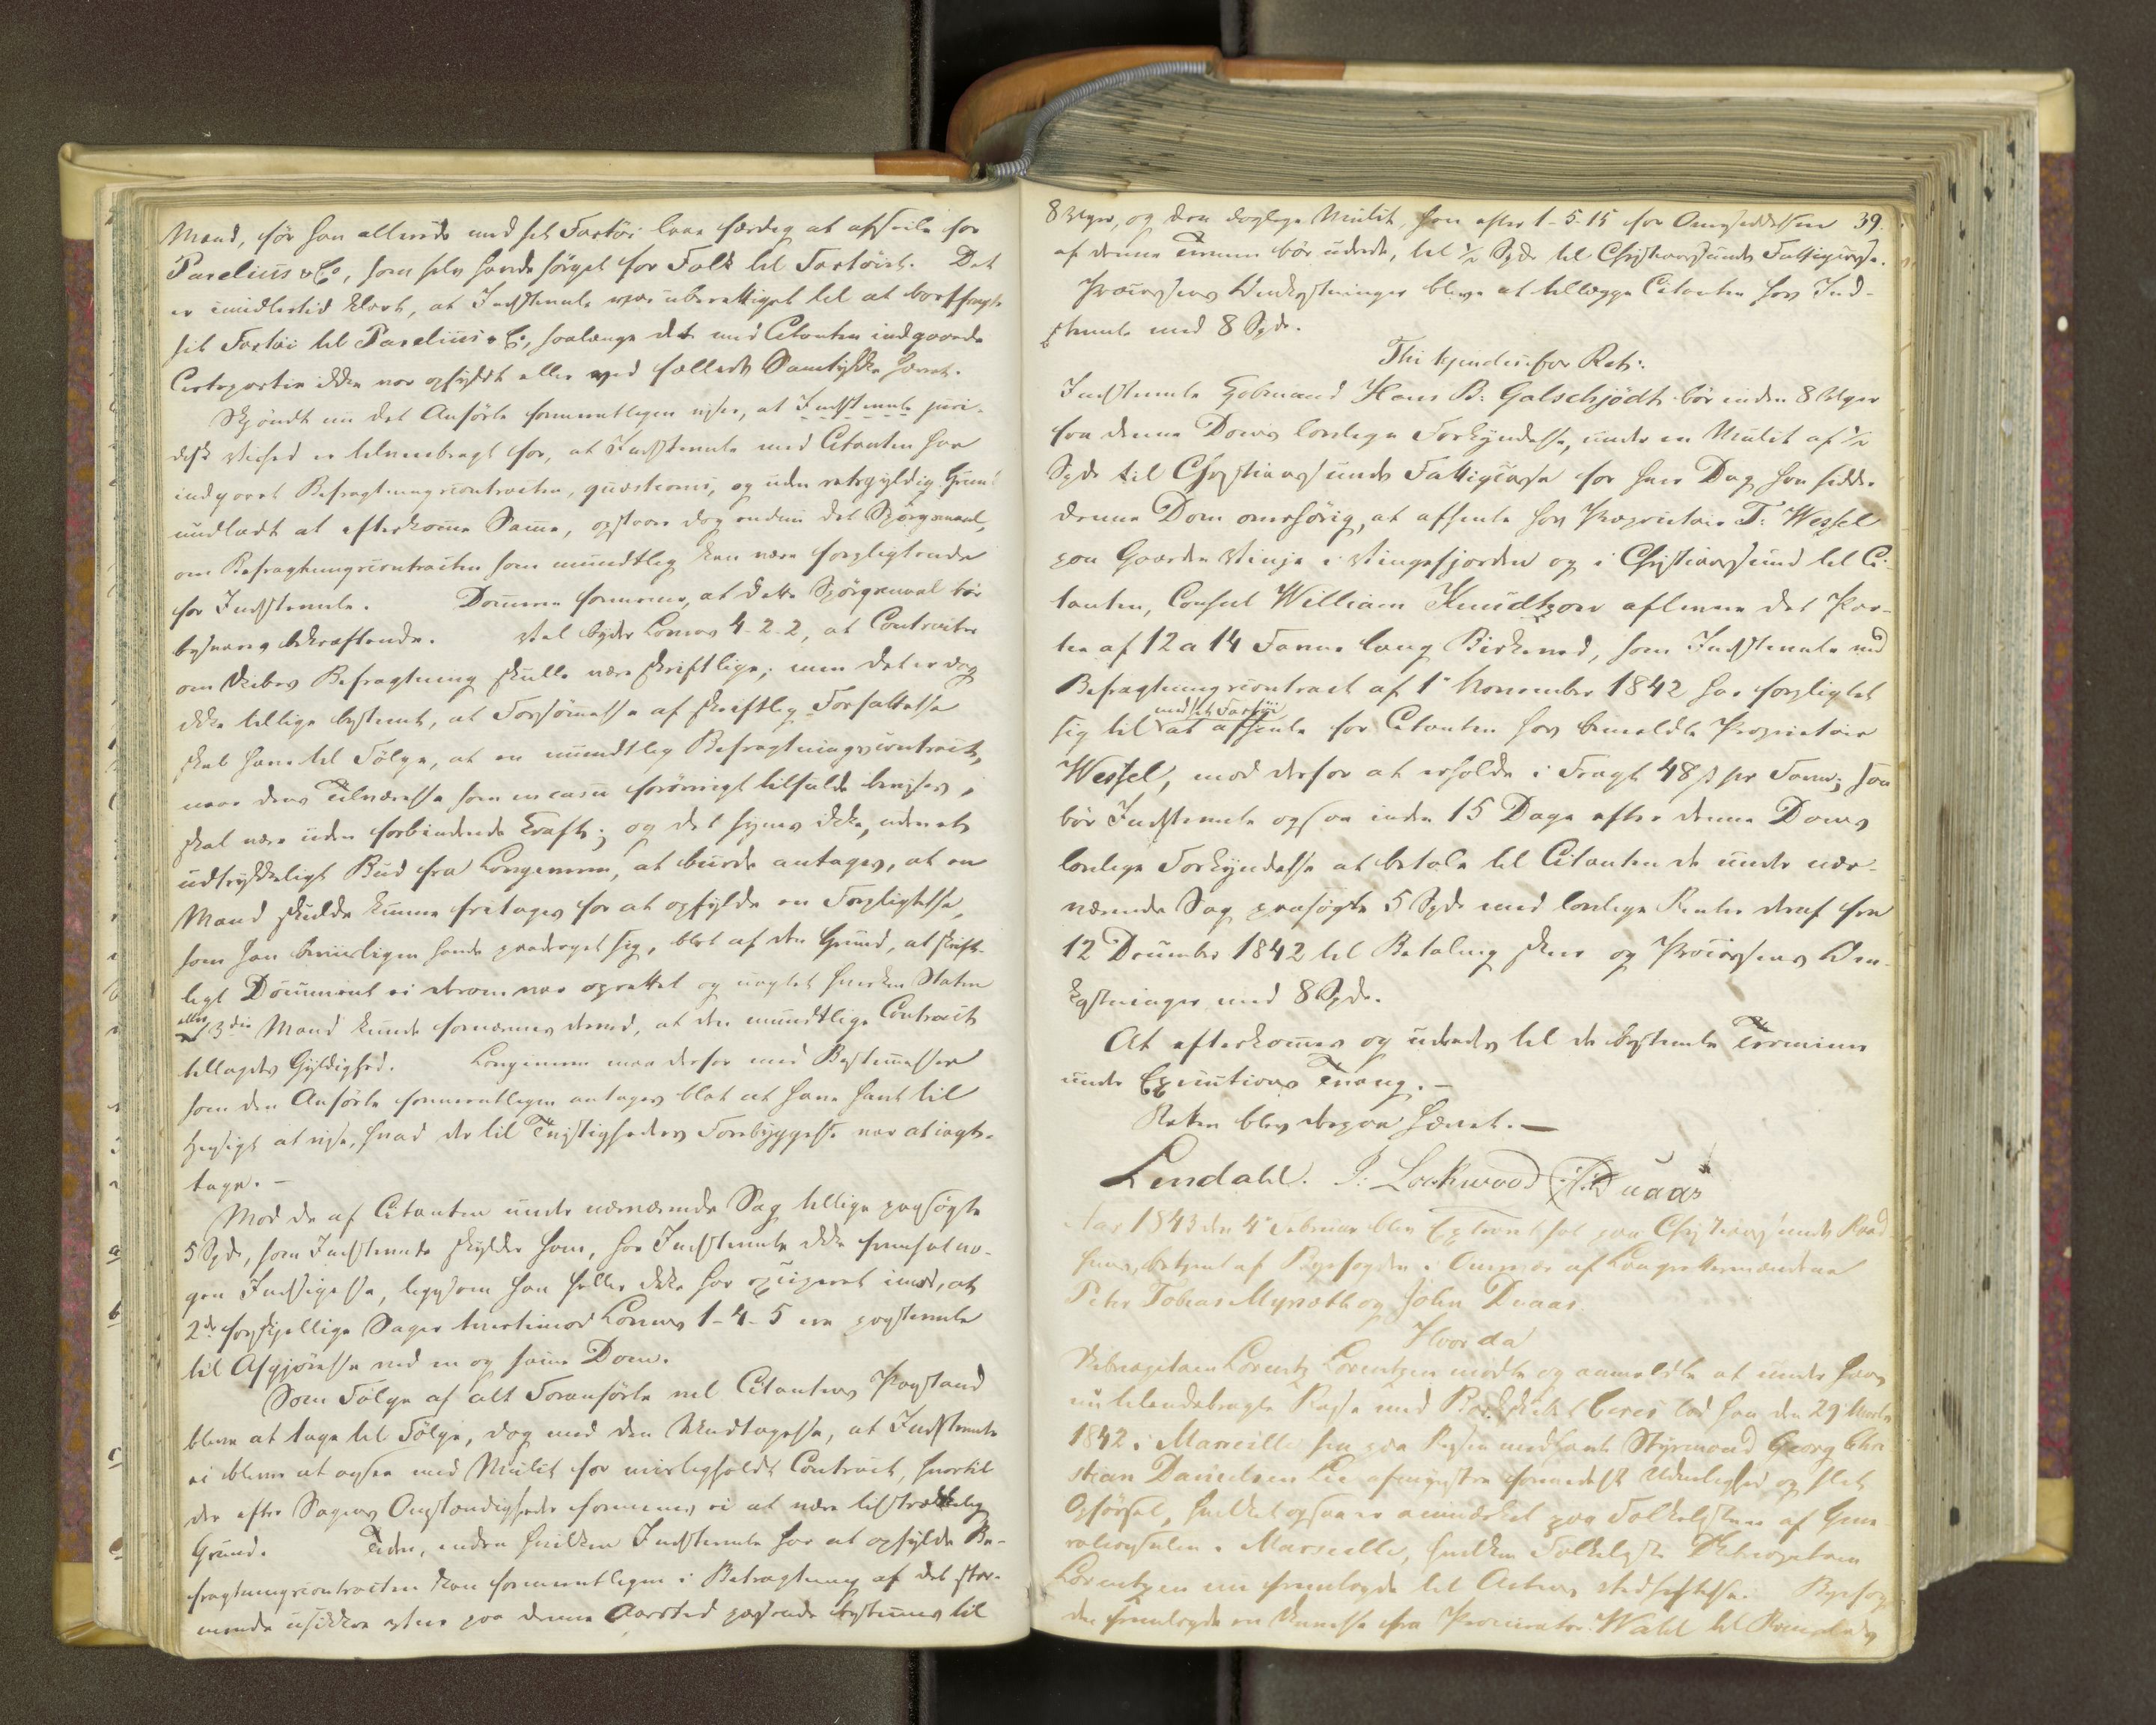 Mand, før han allerede med sit Fartøi laae færdig at afseile for
Parelius & Co, som selv havde sørget for Folk til Fartøiet. Det
er imidlertid klart, at Indstevnte var uberettiget til at bortfragte
sit Fartøi til Parelius & Co, saalænge det med Citanten indgaaede
Certeparti ikke var opfyldt eller ved fælleds Samtykke hævet.
Skjøndt nu det Anførte formentligen viser, at Indstevnte juri-
disk Vished er tilveiebragt for, at Indstevnte med Citanten har
indgaaet Befragtningscontracten, quæstionis, og uden retsgyldig Grund
undladt at efterkomme Samme, opstaaer dog endnu det Spørgsmaal,
om Befragtningscontracten som mundtlig kan være forpligtende
for Indstevnte. Dommeren formener, at dette Spørgsmaal bør
besvares bekræftende. Vel byder Lovens 4-2-2, at Contracter
om Skibes Befragtning skulle være skriftlige; men det er dog
ikke tillige bestemt, at Forsømmelse af skriftlig Forfattelse
skal have til Følge, at en mundtlig Befragtningscontract,
naar dens Tilværelse som in casu forøvrigt tilfulde bevises,
skal være uden forbindende Kraft; og det synes ikke, uden et
udtrykkeligt Bud fra Lovgiveren, at burde antages, at en
Mand skulde kunne fritages for at opfylde en Forpligtelse,
som han beviisligen havde paadraget sig, blot af den Grund, at skrift-
ligt Document ei derom var oprettet og uagtet hverken Staten
eller 3die Mand kunde fornærmes derved, at den mundtlige Contract
tillagdes Gyldighed. Lovgiveren maa derfor med Bestemmelsen
som den Anførte formentligen antages blot at have havt til
Hensigt at vise, hvad der til Tvistigheders Forebyggelse var at iagt-
tage. -
Mod de af Citanten under nærværende Sag tillige paasøgte
5 Spd, som Indstevnte skylder ham, har Indstevnte ikke fremsat no-
gen Indsigelse, ligesom han heller ikke har exciperet imod, at
2de forskjellige Sager tvertimod Lovens 1-4-5 ere paastevnte
til Afgjørelse ved en og samme Dom.
Som Følge af alt Foranførte vil Citantens Paastand
blive at tage til Følge, dog med den Undtagelse, at Indstevnte
ei bliver at ansee med Mulct for misligholdt Contract, hvortil
der efter Sagens Omstændigheder formenes ei at være tilstrækkelig
Grund. Tiden, inden hvilken Indstevnte har at opfylde Be-
fragtningscontracten kan formentligen i Betragtning af det stor-
mende usikkre Veir paa denne Aarstid passende bestemmes til
39.
8 Uger, og den daglige Mulct, han efter 1-5-15 for Oversiddelsen
af denne Termin bør udrede, til ½ Spd til Christianssunds Fattigcasse.
Processens Omkostninger blive at tillægge Citanten hos Ind-
stevnte med 8 Spd.
Thi kjendes for Ret:
Indstevnte Jebmand Hans B: Galschjødt bør inden 8 Uger
fra denne Doms lovlige Forkyndelse, under en Mulct af ½
Spd til Christianssunds Fattigcasse for hver Dag han sidder
denne Dom overhørig, at afhente hos Proprietair T: Wessel
paa Gaarden Vinje i Vingefjorden og i Christianssund til Ci-
tanten, Consul William Knudtzon aflevere det Par-
tie af 12 a 14 Favne lang Birkeved, som Indstevnte ved
Befragtningscontract af 1' November 1842 har forpligtet
sig til med sit Fartøi at afhente for Citanten hos bemeldte Proprietair
Wessel, mod derfor at erholde i Fragt 48 s pr Favn; saa
bør Indstevnte ogsaa inden 15 Dage efter denne Doms
lovlige Forkyndelse at betale til Citanten de under nær-
værende Sag paasøgte 5 Spd med lovlige Renter deraf fra
12 December 1842 til Betaling skeer og Processens Om-
kostninger med 8 Spd.
At efterkommes og udredes til de bestemte Terminer
under Executions Tvang. -
Retten blev derpaa hævet. -
Lendahl. J: Lockwood J: Duaas
Aar 1843 den 4' Februar blev Extraret sat paa Christianssunds Raad
huus, betjent af Byefogden i Overvær af Laugrettemændene
Peter Tobias Myrvæth og John Duaas.
Hvor da
Skibscapitain Lorentz Lorentzen mødte og anmeldte at under hans
nu tilendebragte Reise med Barkskibet Ceres lod han den 29' Marts
1842 i Marseille sin paa Reisen medhavte Styrmand Georg Chri-
stian Danielsen Lie afmynstre formedelst Udueligheds og slet
Opførsel, hvilket ogsaa er anmærket paa Folkelisten af Gene-
ralconsulen i Marseille, hvilken Folkeliste Skibscapitain
Lorentzen nu fremlagde til Actens Vedheftelse. Byefog-
den fremlagde en Skrivelse fra Procurator Wahl til